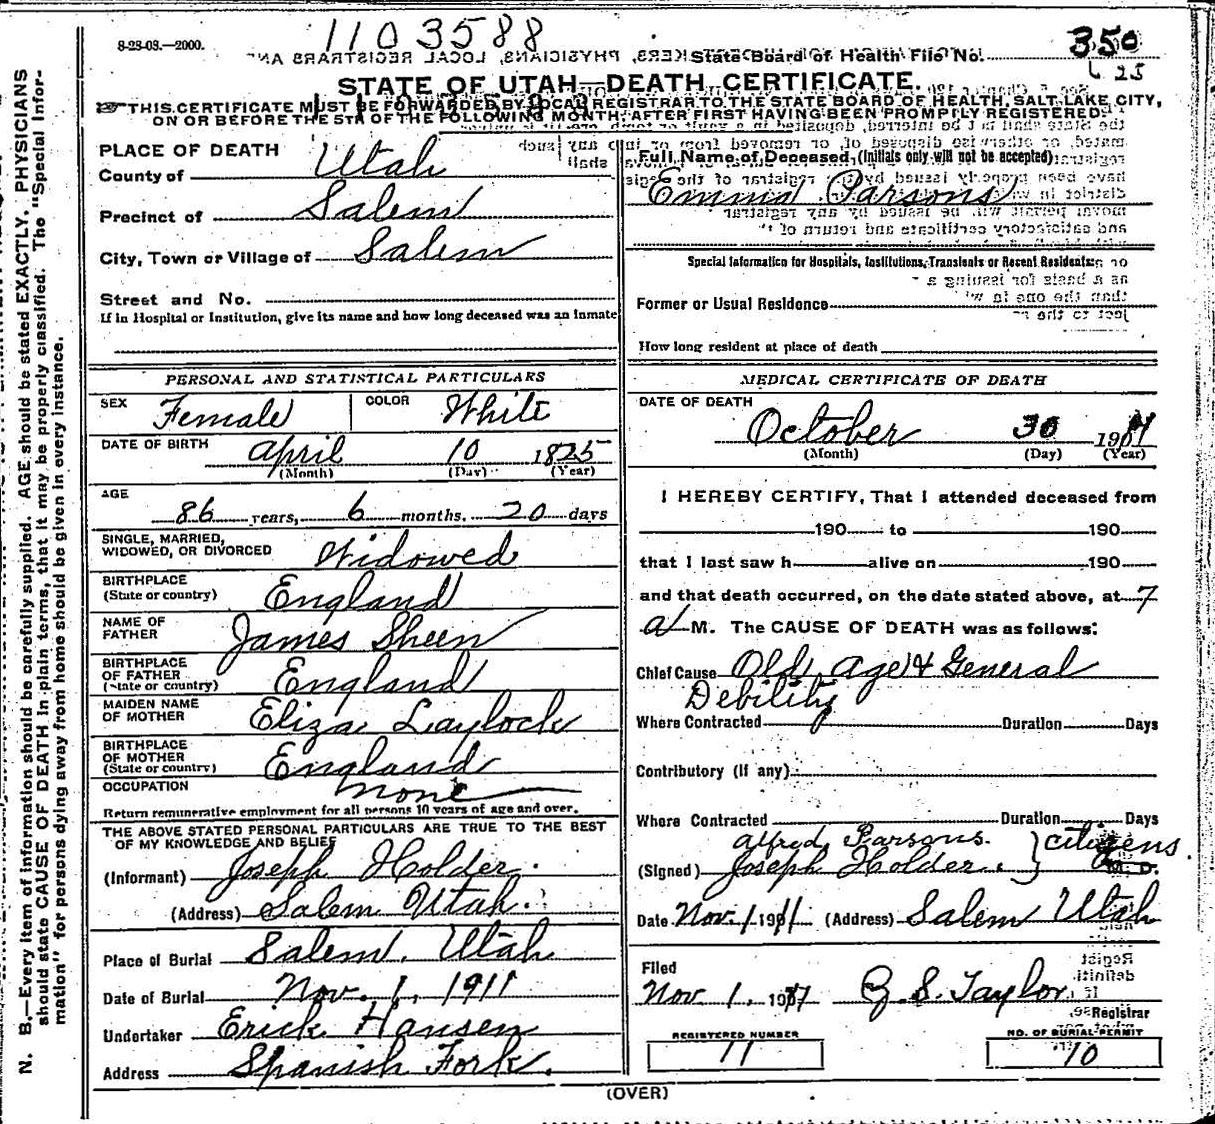 8-23-03.—2000.
1103588
State Board of Health File No. 350
25
STATE OF UTAH—DEATH CERTIFICATE.
THIS CERTIFICATE MUST BE FORWARDED BY LOCAL REGISTRAR TO THE STATE BOARD OF HEALTH, SALT LAKE CITY,
ON OR BEFORE THE 5TH OF THE FOLLOWING MONTH, AFTER FIRST HAVING BEEN PROMPTLY REGISTERED.
PLACE OF DEATH
County of Utah
Precinct of Salem
City, Town or Village of Salem
Street and No.
If in Hospital or Institution, give its name and how long deceased was an inmate
Full Name of Deceased, (Initials only will not be accepted)
Emma Parsons
Special Information for Hospitals, Institutions, Transients or Recent Residents:
Former or Usual Residence
How long resident at place of death
PERSONAL AND STATISTICAL PARTICULARS
SEX Female COLOR White
DATE OF BIRTH April 10 1825
(Month) (Day) (Year)
AGE
86 years, 6 months, 20 days
SINGLE, MARRIED,
WIDOWED, OR DIVORCED Widowed
BIRTHPLACE
(State or country) England
NAME OF
FATHER James Sheen
BIRTHPLACE
OF FATHER
(State or country) England
MAIDEN NAME
OF MOTHER Eliza Laylock
BIRTHPLACE
OF MOTHER
(State or country) England
OCCUPATION none
Return remunerative employment for all persons 10 years of age and over.
THE ABOVE STATED PERSONAL PARTICULARS ARE TRUE TO THE BEST
OF MY KNOWLEDGE AND BELIEF
(Informant) Joseph Holder.
(Address) Salem Utah.
Place of Burial Salem, Utah
Date of Burial Nov. 1, 1911
Undertaker Erick Hansen
Address Spanish Fork.
MEDICAL CERTIFICATE OF DEATH
DATE OF DEATH
October 30 1911
(Month) (Day) (Year)
I HEREBY CERTIFY, That I attended deceased from
190 to 190
that I last saw h alive on 190
and that death occurred, on the date stated above, at 7
a M. The CAUSE OF DEATH was as follows:
Chief Cause Old age & General
Debility
Where Contracted Duration Days
Contributory (if any)
Where Contracted Duration Days
Alfred Parsons.
(Signed) Joseph Holder. } citizens
M. D.
Date Nov. 1 1911 (Address) Salem Utah
Filed
Nov 1, 1911 G. S. Taylor
Registrar
REGISTERED NUMBER
11
NO. OF BURIAL PERMIT
10
(OVER)
N. B.—Every item of information should be carefully supplied. AGE should be stated EXACTLY. PHYSICIANS
should state CAUSE OF DEATH in plain terms, that it may be properly classified. The "Special Infor-
mation" for persons dying away from home should be given in every instance.